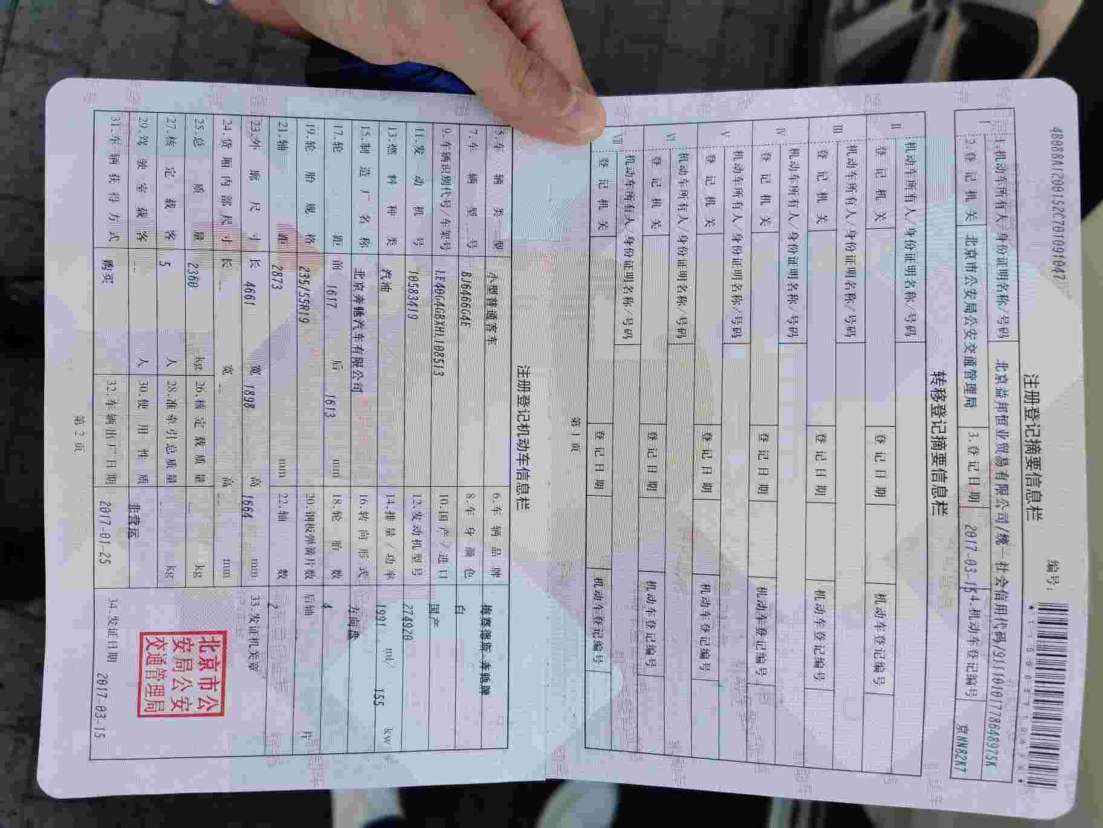 4B088A1200152C701091047
编号:
注册登记摘要信息栏
I
1.机动车所有人/身份证明名称/号码 北京益邦恒业贸易有限公司/统一社会信用代码/91110101778648975K
2.登记机关 北京市公安局公安交通管理局 3.登记日期 2017-03-15 4.机动车登记编号 京NN82K7
转移登记摘要信息栏
II
机动车所有人/身份证明名称/号码
登记机关 登记日期 机动车登记编号
III
机动车所有人/身份证明名称/号码
登记机关 登记日期 机动车登记编号
IV
机动车所有人/身份证明名称/号码
登记机关 登记日期 机动车登记编号
V
机动车所有人/身份证明名称/号码
登记机关 登记日期 机动车登记编号
VI
机动车所有人/身份证明名称/号码
登记机关 登记日期 机动车登记编号
VII
机动车所有人/身份证明名称/号码
登记机关 登记日期 机动车登记编号
第1页
注册登记机动车信息栏
5.车辆类型 小型普通客车 6.车辆品牌 梅赛德斯-奔驰牌
7.车辆型号 BJ6466G4E 8.车身颜色 白
9.车辆识别代号/车架号 LE40G4GBXHL108513 10.国产/进口 国产
11.发动机号 10583419 12.发动机型号 274920
13.燃料种类 汽油 14.排量/功率 1991 ml/ 155 kw
15.制造厂名称 北京奔驰汽车有限公司 16.转向形式 方向盘
17.轮距 前 1617 后 1613 mm 18.轮胎数 4
19.轮胎规格 235/55R19 20.钢板弹簧片数 后轴 片
21.轴距 2873 mm 22.轴数 2
23.外廓尺寸 长 4661 宽 1898 高 1664 mm 33.发证机关章
24.货厢内部尺寸 长 宽 高 mm
25.总质量 2360 kg 26.核定载质量 kg
27.核定载客 5 人 28.准牵引总质量 kg
29.驾驶室载客 人 30.使用性质 非营运
北京市公
安局公安
交通管理局
31.车辆获得方式 购买 32.车辆出厂日期 2017-01-25 34.发证日期 2017-03-15
第2页